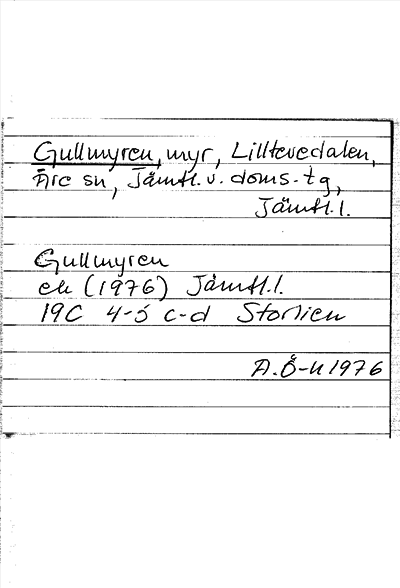 Gullmyren, myr, Lilltevedalen,
Åre sn, Jämtl. v. doms. tg,
Jämtl. l.
Gullmyren
ek (1976) Jämtl. l.
19C 4-5 c-d Storlien
A. Ö-n 1976